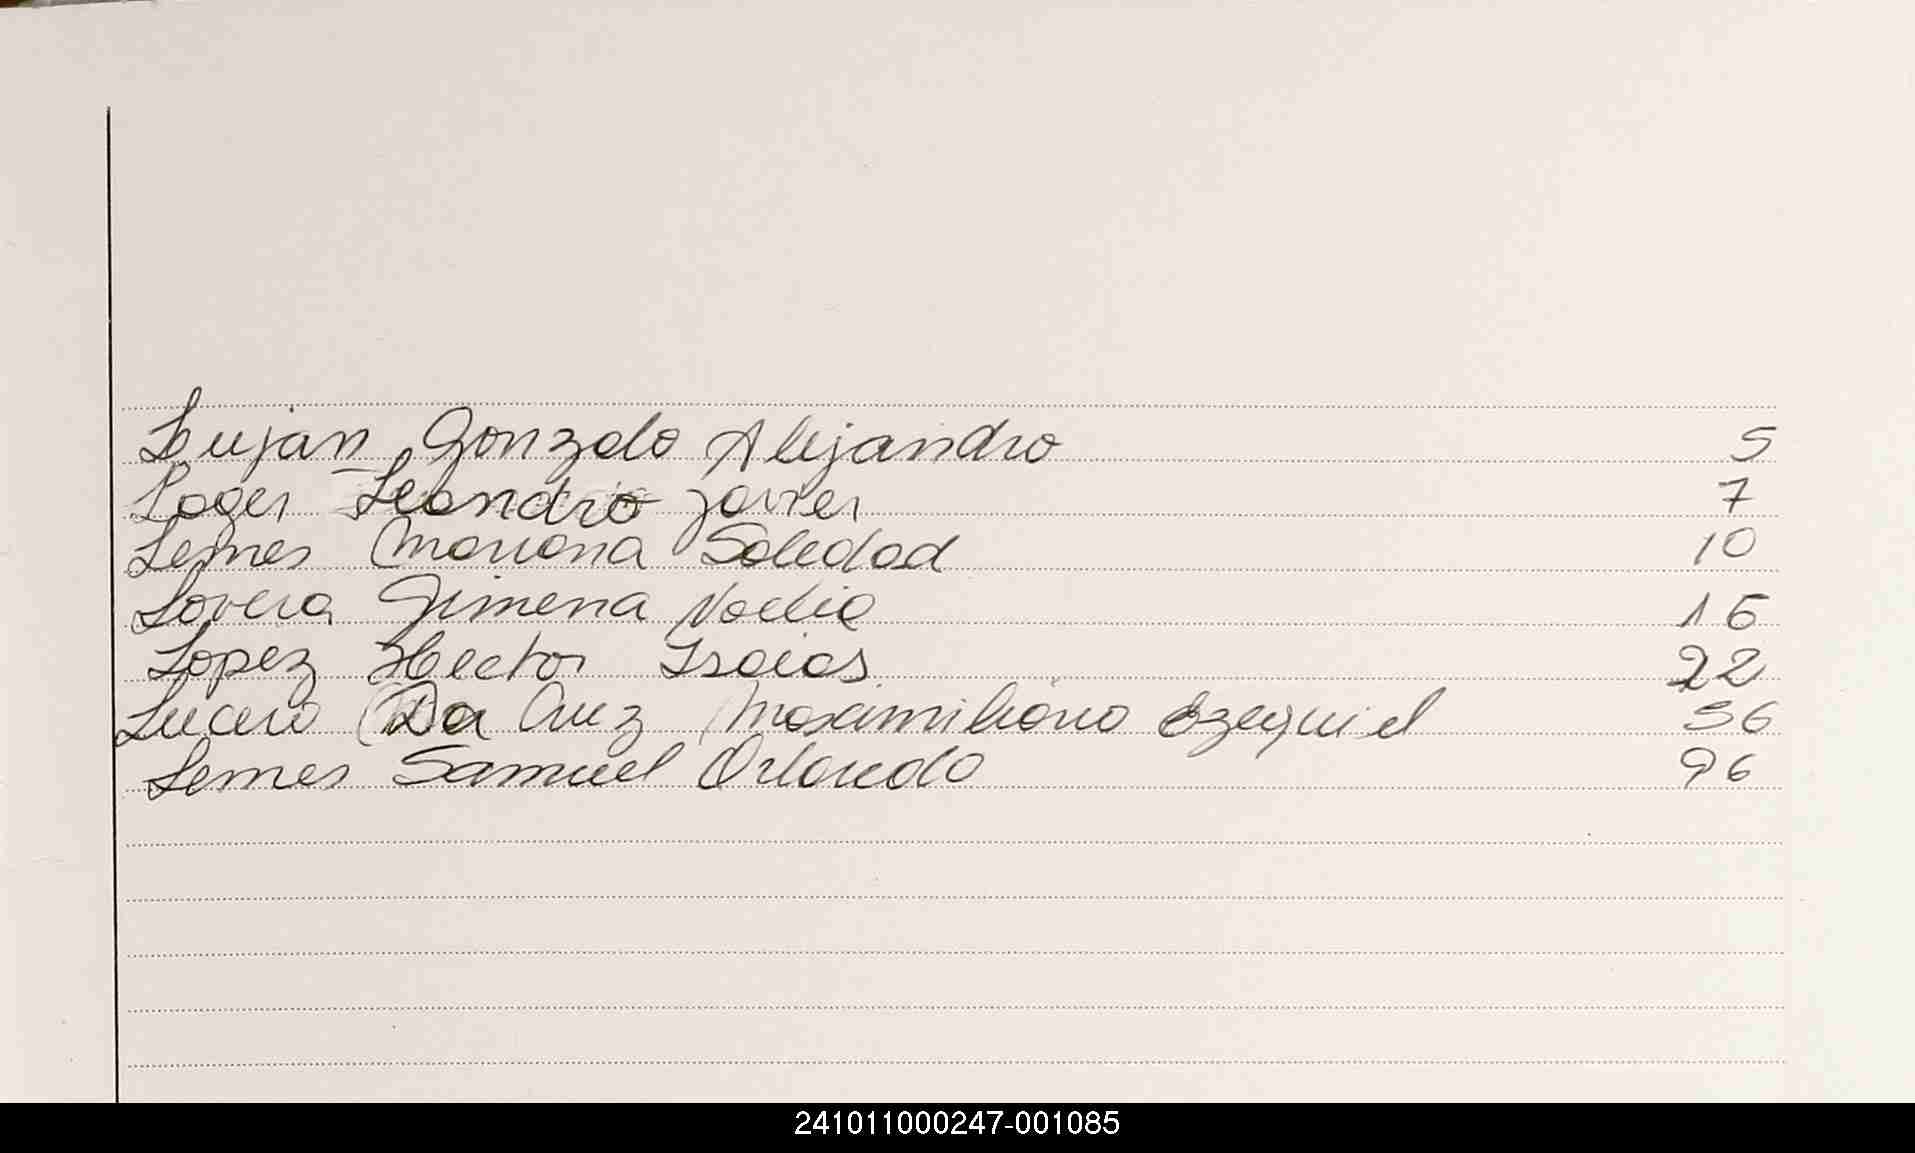 Lujan Gonzalo Alejandro 5
Loger Leandro Javier 7
Lemes Mariana Soledad 10
Lovera Jimena Nadia 16
Lopez Hector Isaias 22
Lucero Da Cruz Maximiliano Ezequiel 56
Lemes Samuel Orlando 96
241011000247-001085